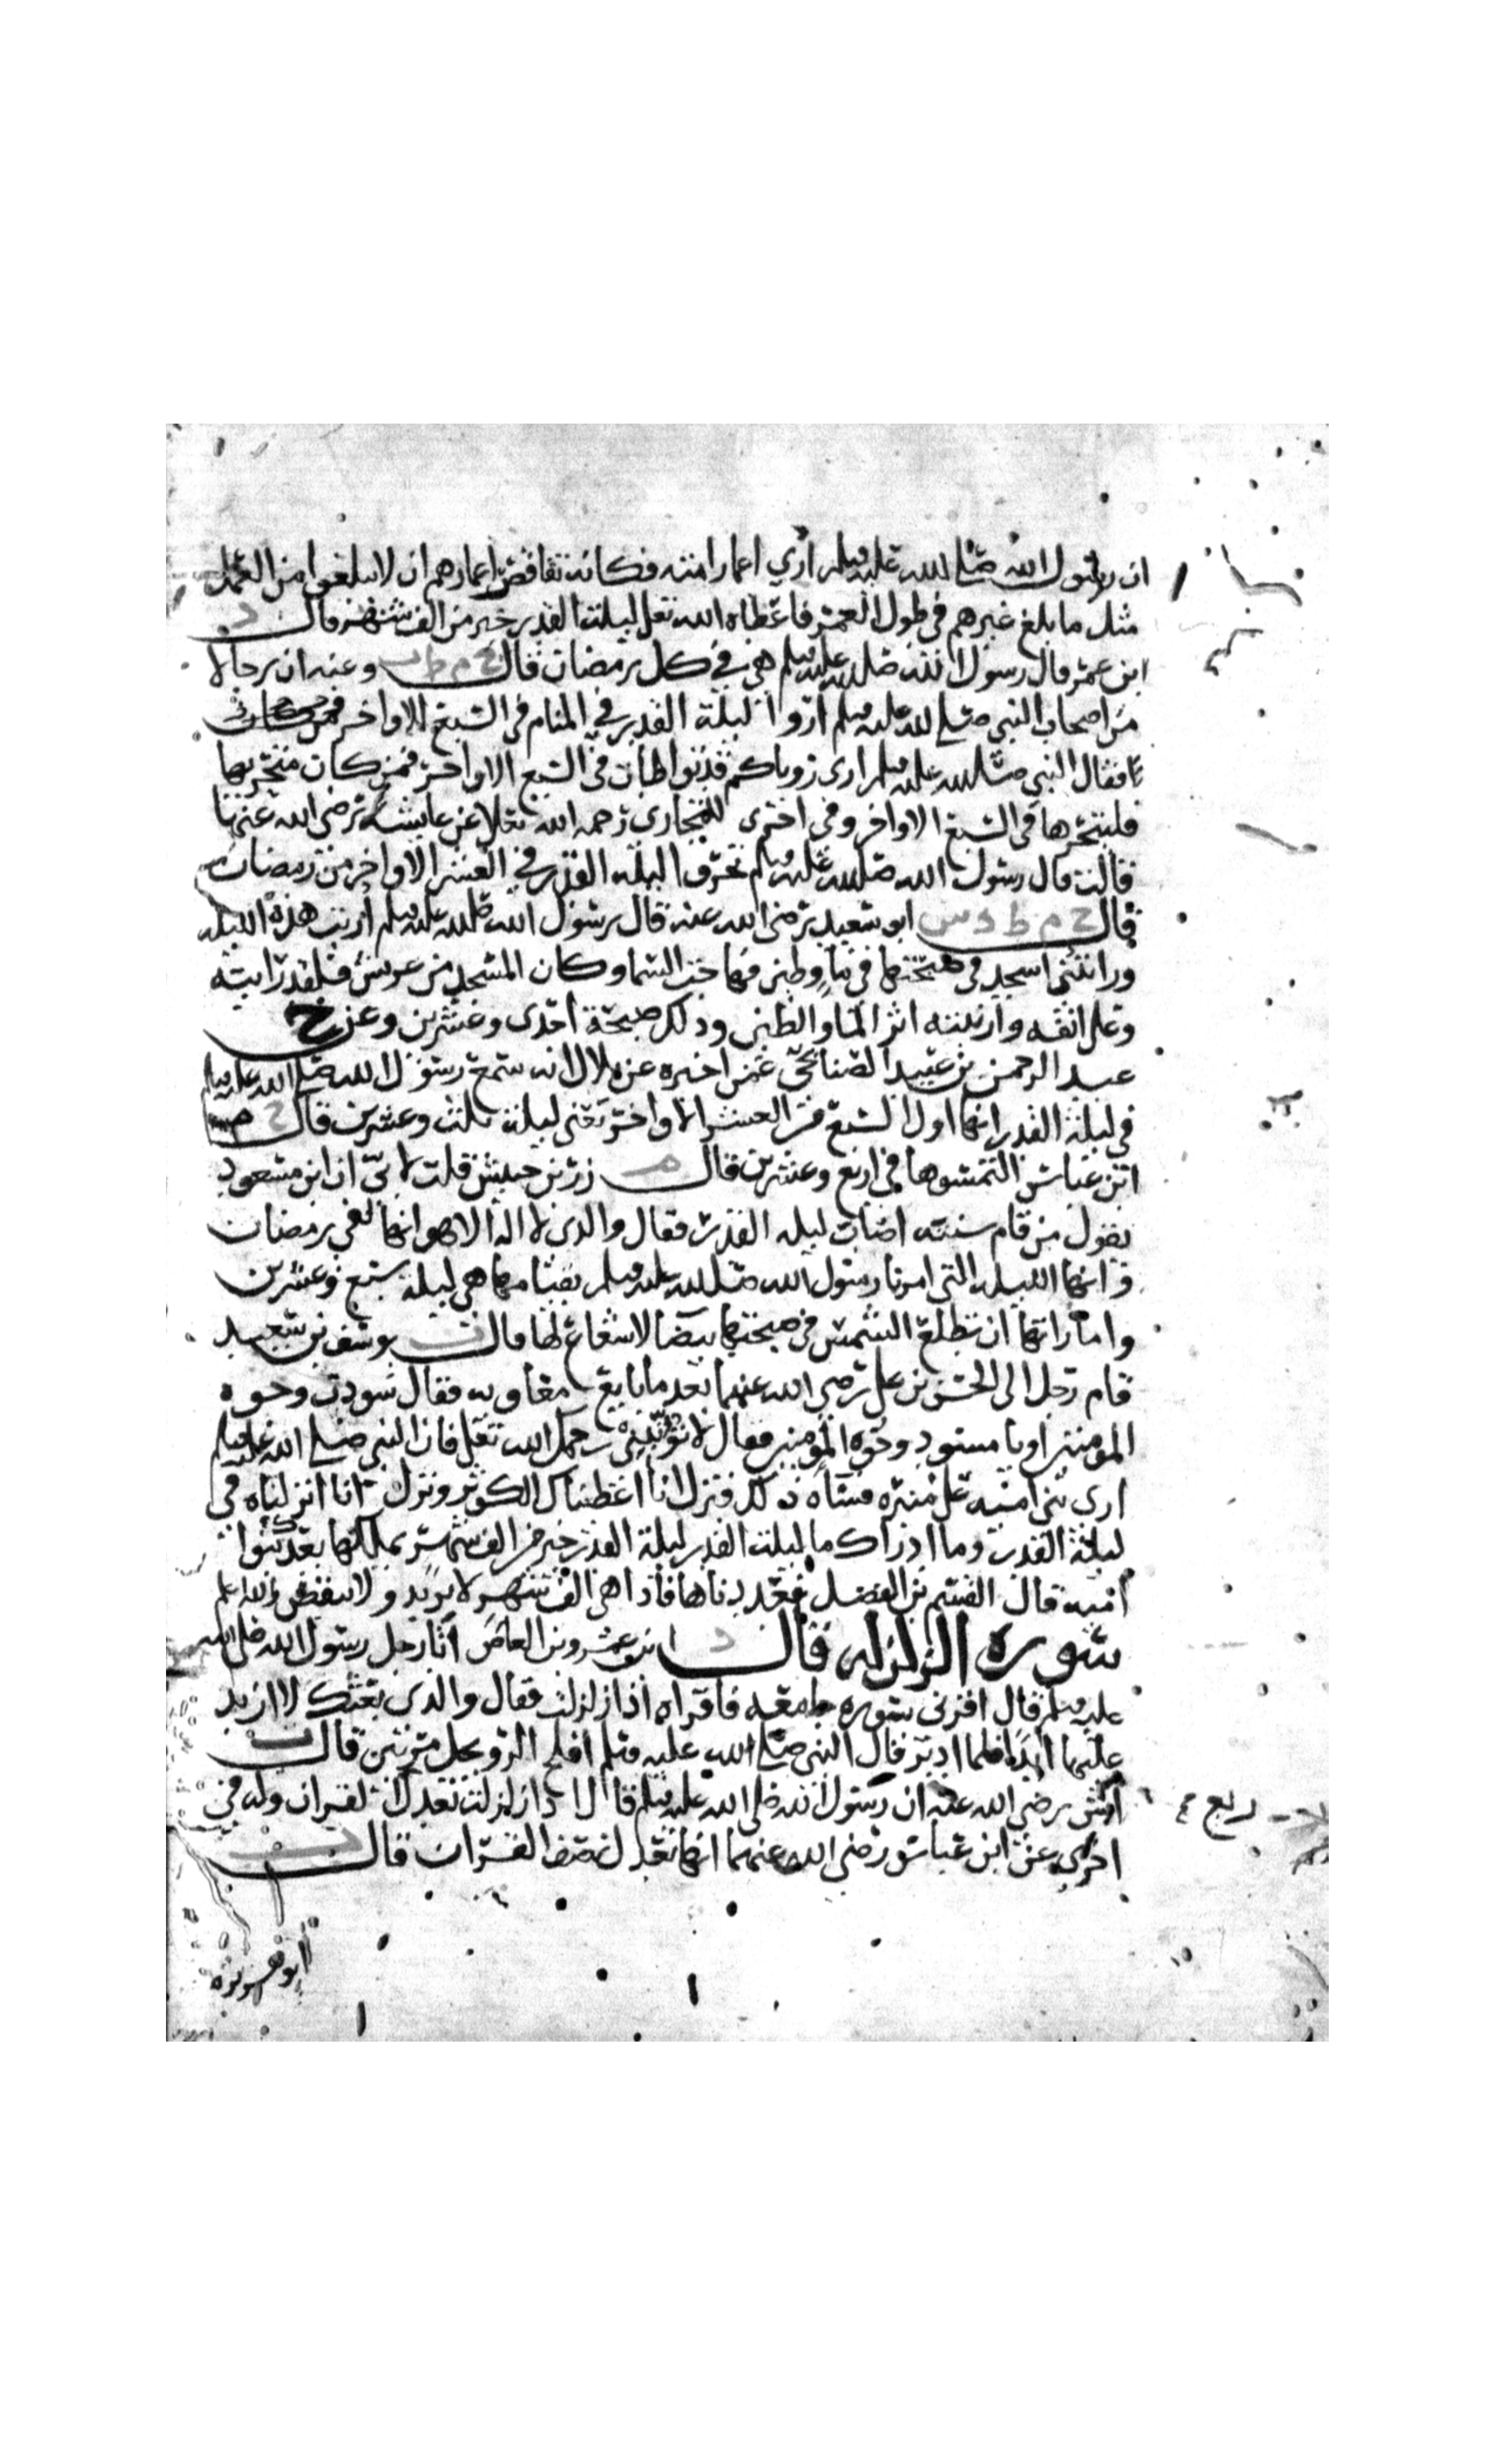 ان رسول الله صلى الله عليه وسلم اري اعمار امته فكانه تقاصر اعمارهم ان لا يبلغوا من العمل
مثل ما بلغ غيرهم في طول العمر فاعطاه الله تعلى ليلة القدر خير من الف شهر قال د
ابن عمر قال رسول الله صلى الله عليه وسلم هي في كل رمضان قال خ م ط وعنه ان رجالا
من اصحاب النبي صلى الله عليه وسلم اروا ليلة القدر في المنام في السبع الاواخر
فقال النبي صلى الله عليه وسلم ارى روياكم قد تواطات في السبع الاواخر فمن كان متحريها
فليتحرها في السبع الاواخر وفي اخرى للبخاري رحمه الله تعلى عن عايشة رضي الله عنها
قالت قال رسول الله صلى الله عليه وسلم تحروا ليلة القدر في العشر الاواخر من رمضان
قال خ م ط د س ابو سعيد رضي الله عنه قال رسول الله صلى الله عليه وسلم اريت هذه الليلة
ورايتني اسجد في صبيحتها في ما وطين السما وكان المسجد من عريش فلقد رايته
وعلى انفه وارنبته اثر الما والطين وذلك صبيحة احدى وعشرين وعن خ
عبد الرحمن بن عبيد الصنابحي عمن اخبره عن بلال انه سمع رسول الله صلى الله عليه وسلم
في ليلة القدر انها اول السبع من العشر الاواخر يعني ليلة ثلث وعشرين قال خ
ابن عباس التمسوها في اربع وعشرين قال م زر بن حبيش قلت لابي ان ابن مسعود
يقول من قام سنته اصاب ليلة القدر فقال والذي لا اله الا هو انها لفي رمضان
وانها الليلة التي امرنا رسول الله صلى الله عليه وسلم بقيامها هي ليلة سبع وعشرين
واماراتها ان تطلع الشمس في صبيحتها بيضا لا شعاع لها قال ت يوسف بن سعيد
قام رجل الى الحسن بن علي رضي الله عنهما بعد ما بايع معاويه فقال سودت وجوه
المومنين او يا مسود وجوه المومنين فقال لا تؤنبني رحمك الله تعلى فان النبي صلى الله عليه وسلم
اري بني امية على منبره فساه ذلك فنزل انا اعطيناك الكوثر ونزل انا انزلناه في
ليلة القدر وما ادراك ما ليلة القدر ليلة القدر خير من الف شهر يملكها بعدك بنوا
امية قال القسم بن الفضل فعددناها فاذا هي الف شهر لا يزيد ولا ينقص والله اعلم
سورة الزلزلة قال د ابن عمرو بن العاص اتا رجل رسول الله صلى الله
عليه وسلم قال اقرني سورة جامعة فاقراه اذا زلزلت فقال والذي بعثك لا ازيد
عليها ابدا فلما ادبر قال النبي صلى الله عليه وسلم افلح الرويجل مرتين قال ت
انس رضي الله عنه ان رسول الله صلى الله عليه وسلم قال اذا زلزلت تعدل القران وله في
اخرى عن ابن عباس رضي الله عنهما انها تعدل نصف القران قال ت
ربع
ابو هريره